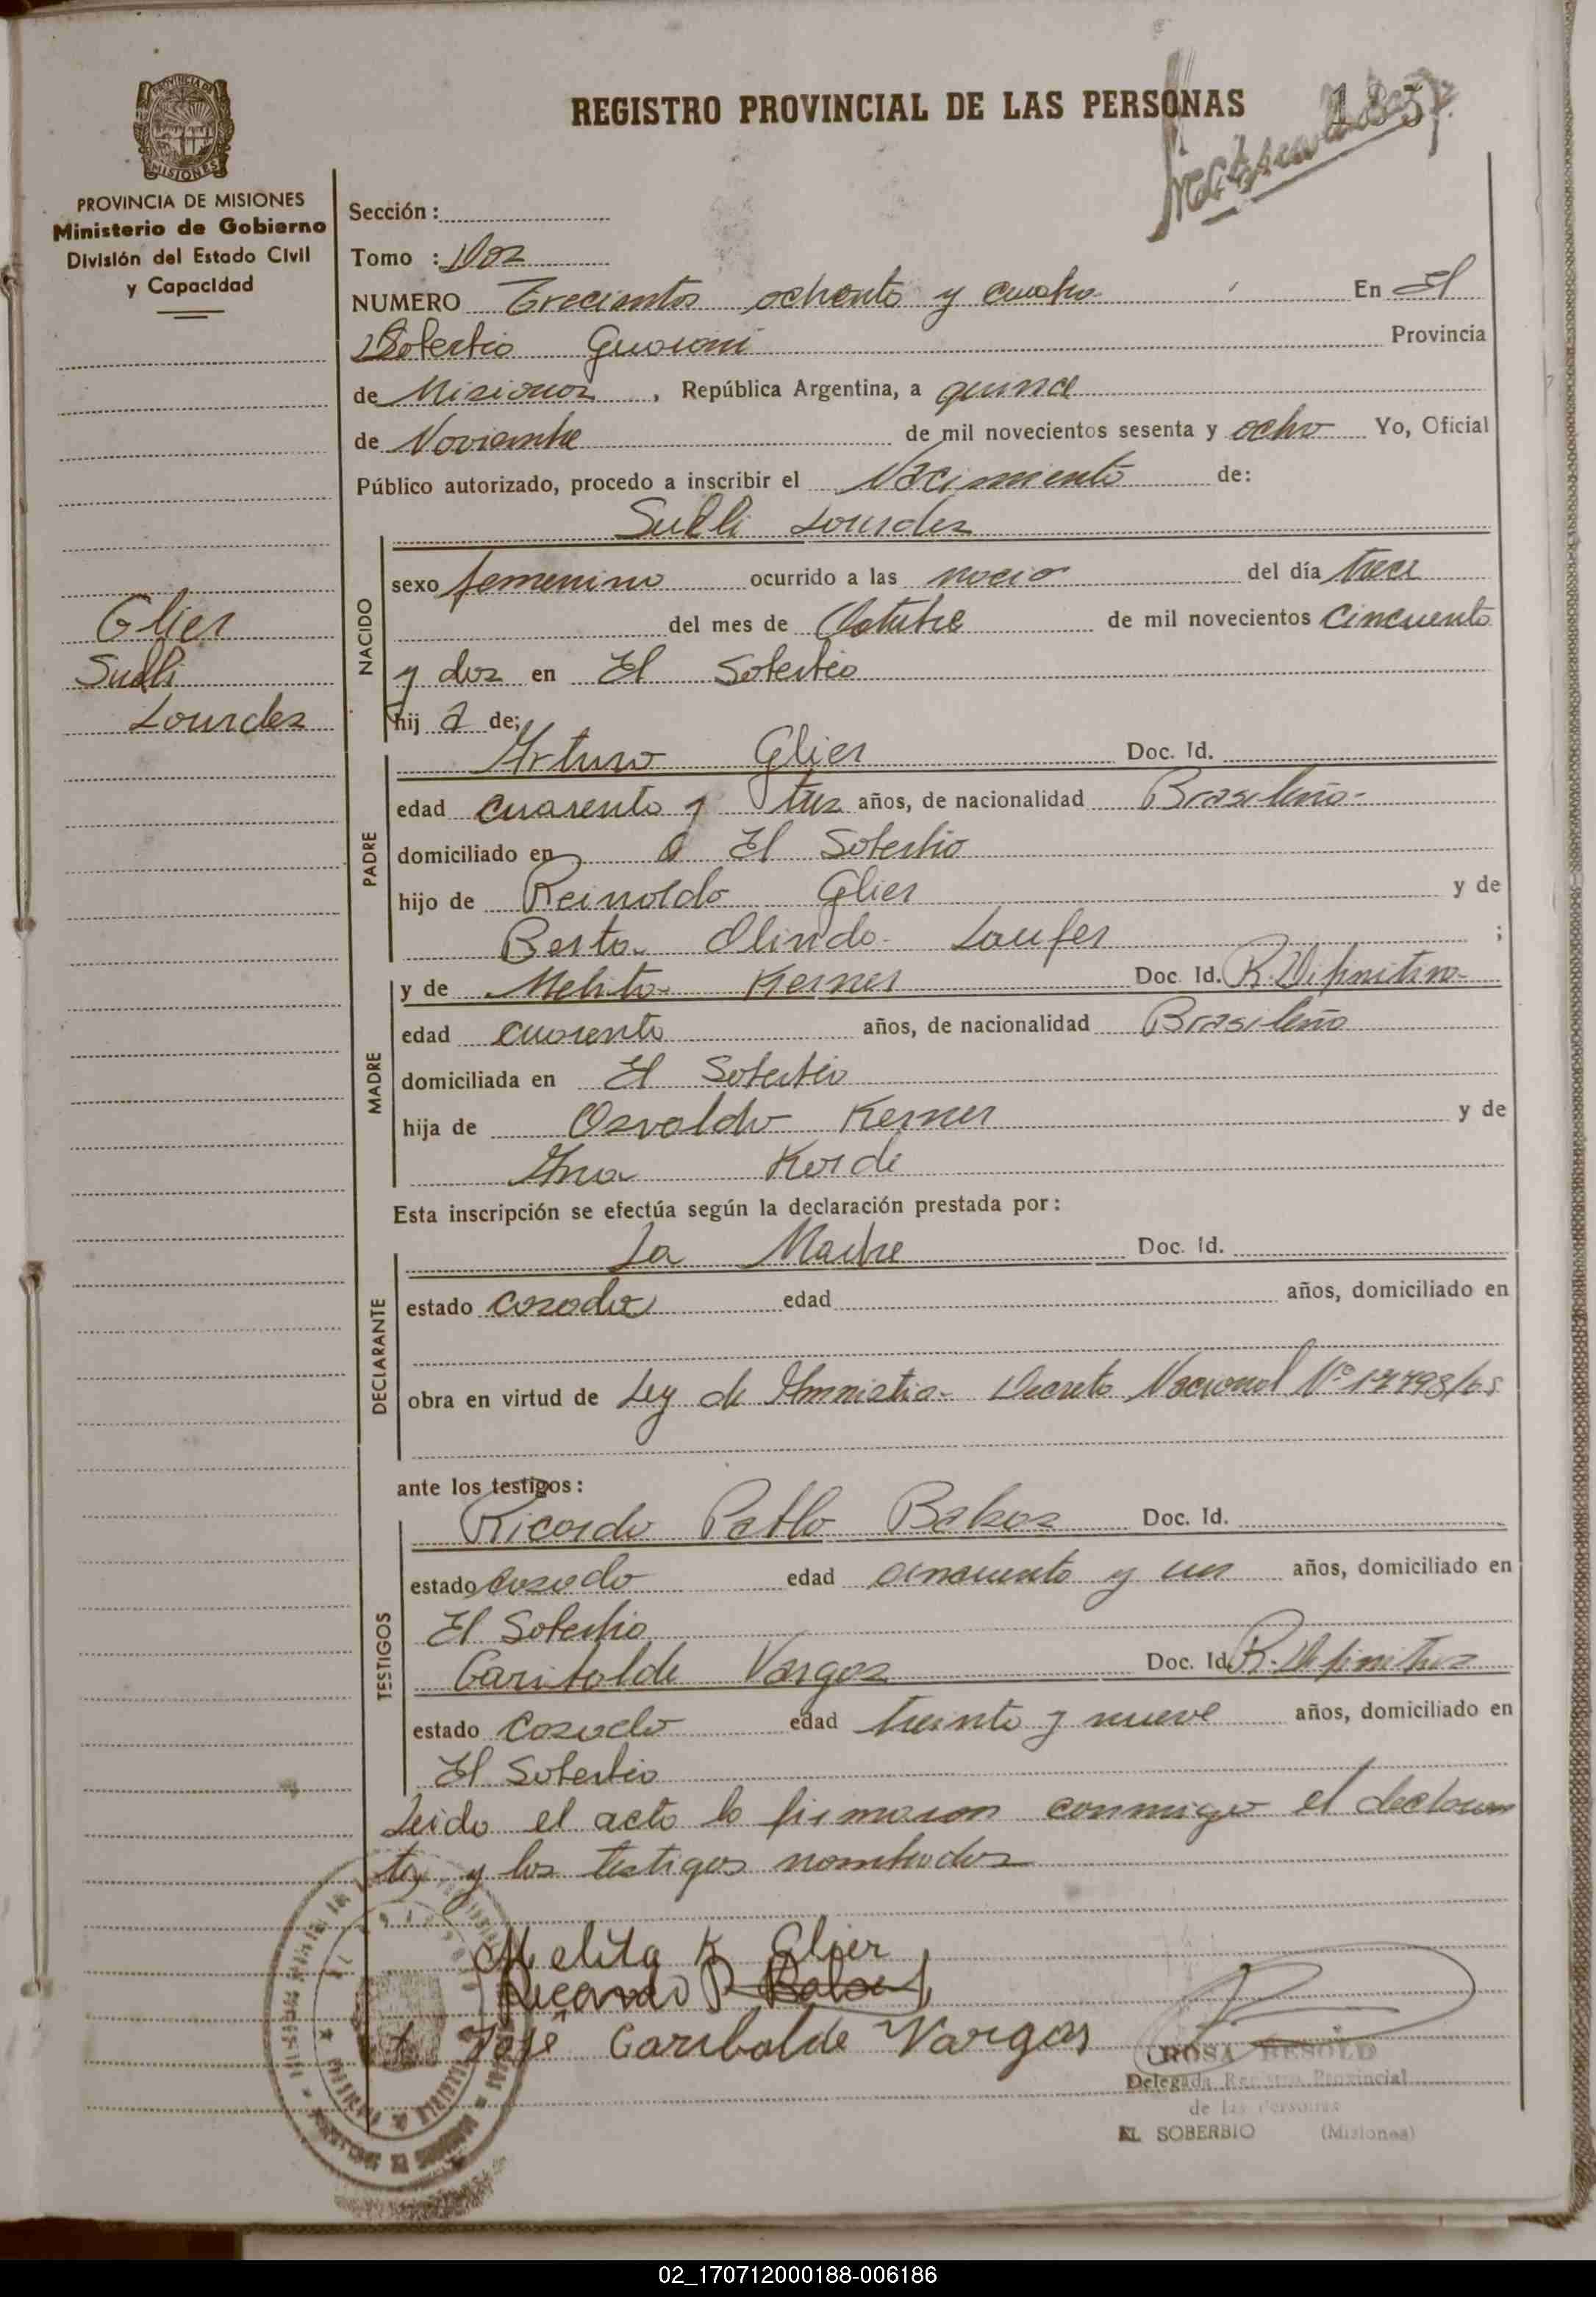 REGISTRO PROVINCIAL DE LAS PERSONAS
PROVINCIA DE
MISIONES
PROVINCIA DE MISIONES
Ministerio de Gobierno
División del Estado Civil
y Capacidad
Sección :
Tomo : Dos
NUMERO Trecientos ochenta y cuatro En El
Soberbio Guarani Provincia
de Misiones , República Argentina, a quince
de Noviembre de mil novecientos sesenta y ocho Yo, Oficial
Público autorizado, procedo a inscribir el Nacimiento de:
Suelli Lourdes
NACIDO
sexo femenino ocurrido a las del día trece
del mes de Octubre de mil novecientos Cincuenta
y dos en El Soberbio
hij a de:
Glier
Suelli
Lourdes
PADRE
Arturo Glier Doc. Id.
edad cuarenta y tres años, de nacionalidad Brasileña
domiciliado en El Soberbio
hijo de Reinoldo Glier y de
Berta Olinda Laufer ;
MADRE
y de Melita Kerner Doc. Id. R. Difinitiva
edad cuarenta años, de nacionalidad Brasileña
domiciliada en El Soberbio
hija de Osvaldo Kerner y de
Ana
Esta inscripción se efectúa según la declaración prestada por:
DECLARANTE
La Madre Doc. Id.
estado casada edad años, domiciliado en
obra en virtud de Ley de Amnistia Decreto Nacional Nº
ante los testigos:
TESTIGOS
Ricardo Pablo Doc. Id.
estado casado edad cincuenta y un años, domiciliado en
El Soberbio
Garibalde Vargas Doc. Id. R. Difinitiva
estado casado edad treinta y nueve años, domiciliado en
El Soberbio
Leido el acta lo firmaron conmigo el declaran
te y los testigos nombrados
Melita K Glier
Ricardo P
José Garibalde Vargas
ROSA RESOLD
Delegada Registro Provincial
de las Personas
EL SOBERBIO (Misiones)
02_170712000188-006186